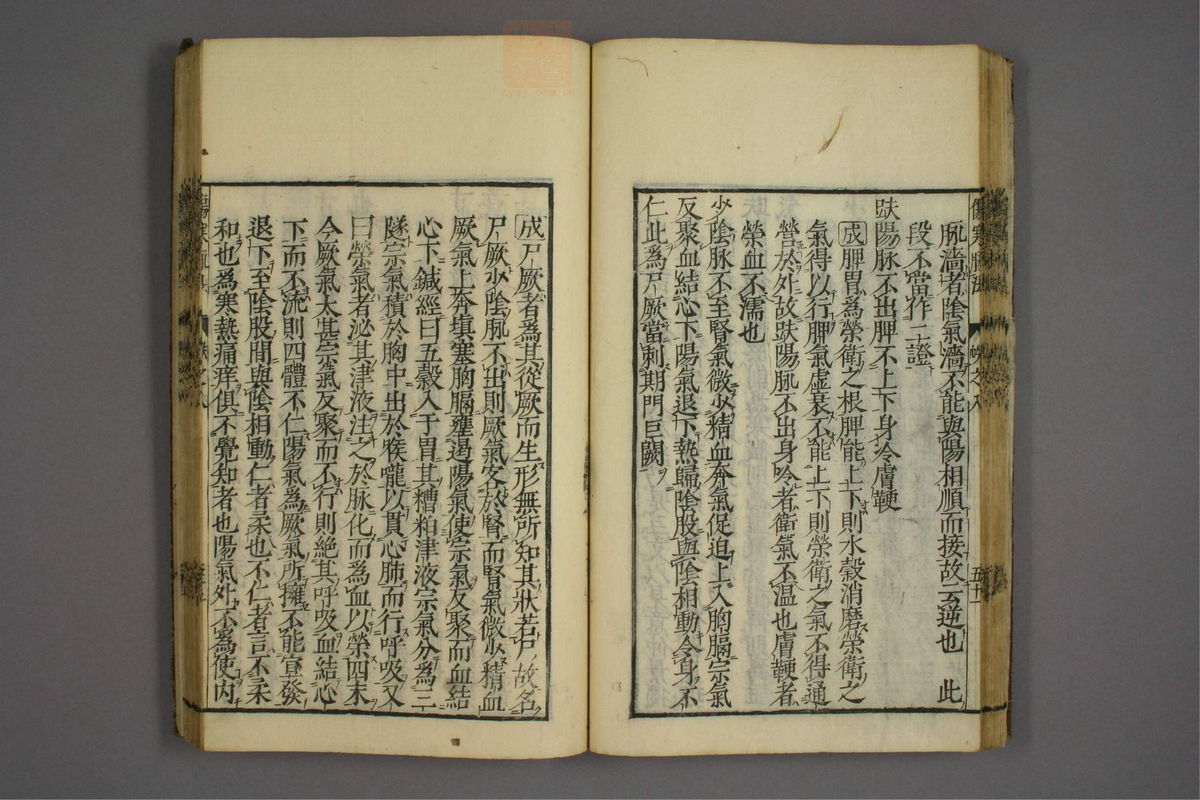 脉濇者陰氣濇不能與陽相順而接故云逆也　此
段不當作二證
趺陽脉不出脾不上下身冷膚鞕
成脾胃爲榮衛之根脾能上下則水穀消磨榮衛之
氣得以行脾氣虛衰不能上下則榮衛之氣不得通
營於外故趺陽脉不出身冷者衛氣不溫也膚鞕者
榮血不濡也
少陰脉不至腎氣微少精血奔氣促迫上入胸膈宗氣
反聚血結心下陽氣退下熱歸陰股與陰相動令身不
仁此爲尸厥當刺期門巨闕
成尸厥者爲其從厥而生形無所知其狀若尸故名
尸厥少陰脉不出則厥氣客於腎而腎氣微少精血
厥氣上奔填塞胸膈壅遏陽氣使宗氣反聚而血結
心下鍼經曰五穀入于胃其糟粕津液宗氣分爲三
隧宗氣積於胸中出於喉嚨以貫心肺而行呼吸又
曰榮氣者泌其津液注之於脉化而爲血以榮四末
今厥氣太甚宗氣反聚而不行則絶其呼吸血結心
下而不流則四體不仁陽氣爲厥氣所擁不能宣發
退下至陰股間與陰相動仁者柔也不仁者言不柔
和也爲寒熱痛痒俱不覺知者也陽氣外不爲使內